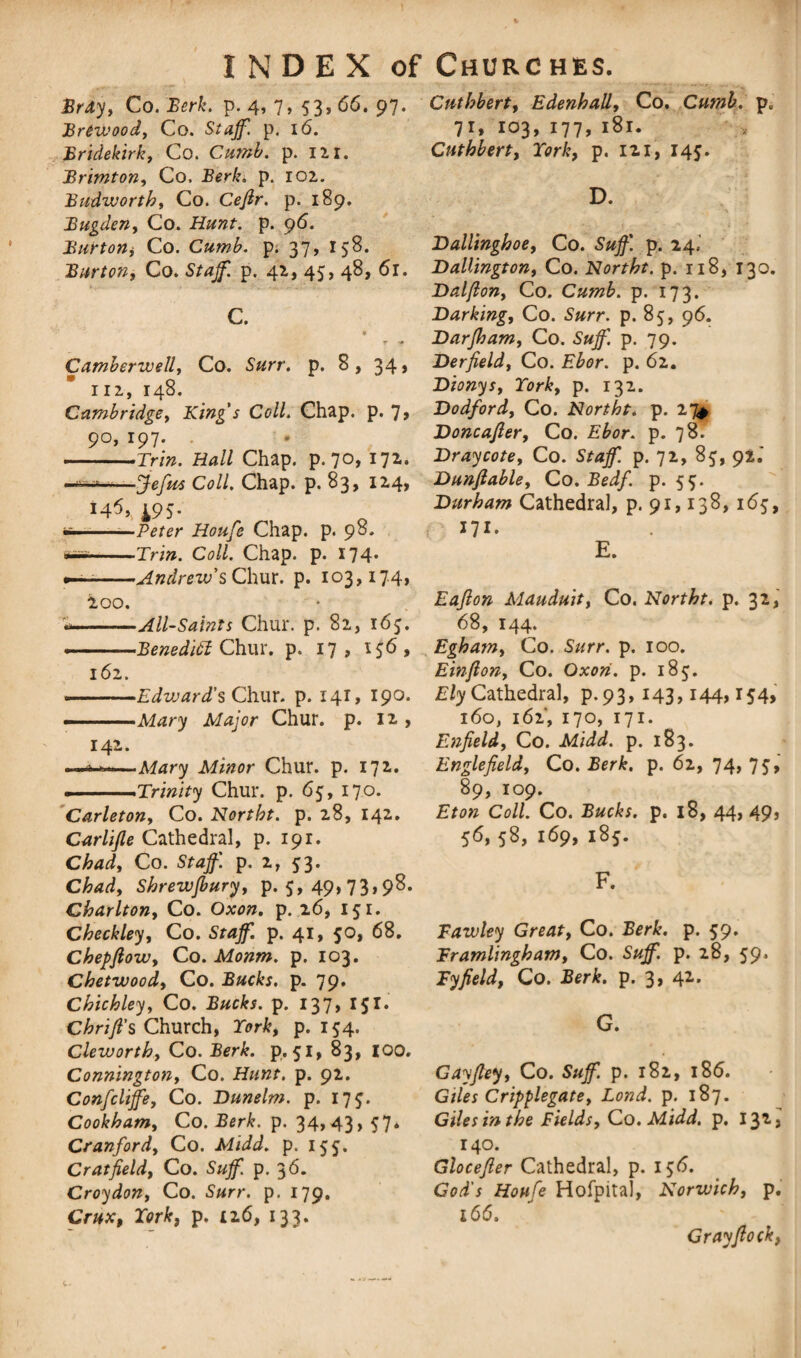 INDEX of Churches.
Bray, Co. Berk. p. 4, 7, 53, 66. 97.
Brewood, Co. Staff. p. 16.
Bridekirk, Co. Cumb. p. 121.
Brimton, Co. Berk. p. 102.
Budworth, Co. Ceſtr. p. 189.
Bugden, Co. Hunt. p. 96.
Burton, Co. Cumb. p. 37, 158.
Burton, Co. Staff. p. 42, 45, 48, 61.
C.
Camberwell, Co. Surr. p. 8, 34,
112, 148.
Cambridge, King's Coll. Chap. p. 7,
90, 197.
———Trin. Hall Chap. p. 70, 172.
———Jeſus Coll. Chap. p. 83, 124,
146, 195.
———Peter Houſe Chap. p. 98.
———Trin. Coll. Chap. p. 174.
———Andrew's Chur. p. 103, 174,
200.
———All-Saints Chur. p. 82, 165.
———Benedict Chur. p. 17, 156,
162.
———Edward's Chur. p. 141, 190.
———Mary Major Chur. p. 12,
142.
———Mary Minor Chur. p. 172.
———Trinity Chur. p. 65, 170.
Carleton, Co. Northt. p. 28, 142.
Carliſle Cathedral, p. 191.
Chad, Co. Staff. p. 2, 53.
Chad, Shrewſbury, p. 5, 49, 73, 98.
Charlton, Co. Oxon. p. 26, 151.
Checkley, Co. Staff. p. 41, 50, 68.
Chepſtow, Co. Monm. p. 103.
Chetwood, Co. Bucks. p. 79.
Chichley, Co. Bucks. p. 137, 151.
Chriſt's Church, York, p. 154.
Cleworth, Co. Berk. p. 51, 83, 100.
Connington, Co. Hunt. p. 92.
Conſcliffe, Co. Dunelm. p. 175.
Cookham, Co. Berk. p. 34, 43, 57.
Cranford, Co. Midd. p. 155.
Cratfield, Co. Suff. p. 36.
Croydon, Co. Surr. p. 179.
Crux, York, p. 126, 133.
Cuthbert, Edenhall, Co. Cumb. p.
71, 103, 177, 181.
Cuthbert, York, p. 121, 145.
D.
Dallinghoe, Co. Suff. p. 24.
Dallington, Co. Northt. p. 118, 130.
Dalſton, Co. Cumb. p. 173.
Darking, Co. Surr. p. 85, 96.
Darſham, Co. Suff. p. 79.
Derfield, Co. Ebor. p. 62.
Dionys, York, p. 132.
Dodford, Co. Northt. p.
Doncaſter, Co. Ebor. p. 78.
Draycote, Co. Staff. p. 72, 85, 92.
Dunſtable, Co. Bedf. p. 55.
Durham Cathedral, p. 91, 138, 165,
171.
E.
Eaſton Mauduit, Co. Northt. p. 32,
68, 144.
Egham, Co. Surr. p. 100.
Einſton, Co. Oxon. p. 185.
Ely Cathedral, p. 93, 143, 144, 154,
160, 162, 170, 171.
Enfield, Co. Midd. p. 183.
Englefield, Co. Berk. p. 62, 74, 75,
89, 109.
Eton Coll. Co. Bucks. p. 18, 44, 49,
56, 58, 169, 185.
F.
Fawley Great, Co. Berk. p. 59.
Framlingham, Co. Suff. p. 28, 59.
Fyfield, Co. Berk. p. 3, 42.
G.
Gayſley, Co. Suff. p. 182, 186.
Giles Cripplegate, Lond. p. 187.
Giles in the Fields, Co. Midd. p. 132,
140.
Gloceſter Cathedral, p. 156.
God's Houſe Hoſpital, Norwich, p.
166.
Grayſtock,